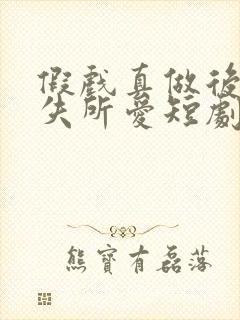 假戲真做後
失所愛短劇
熊寶有磊落